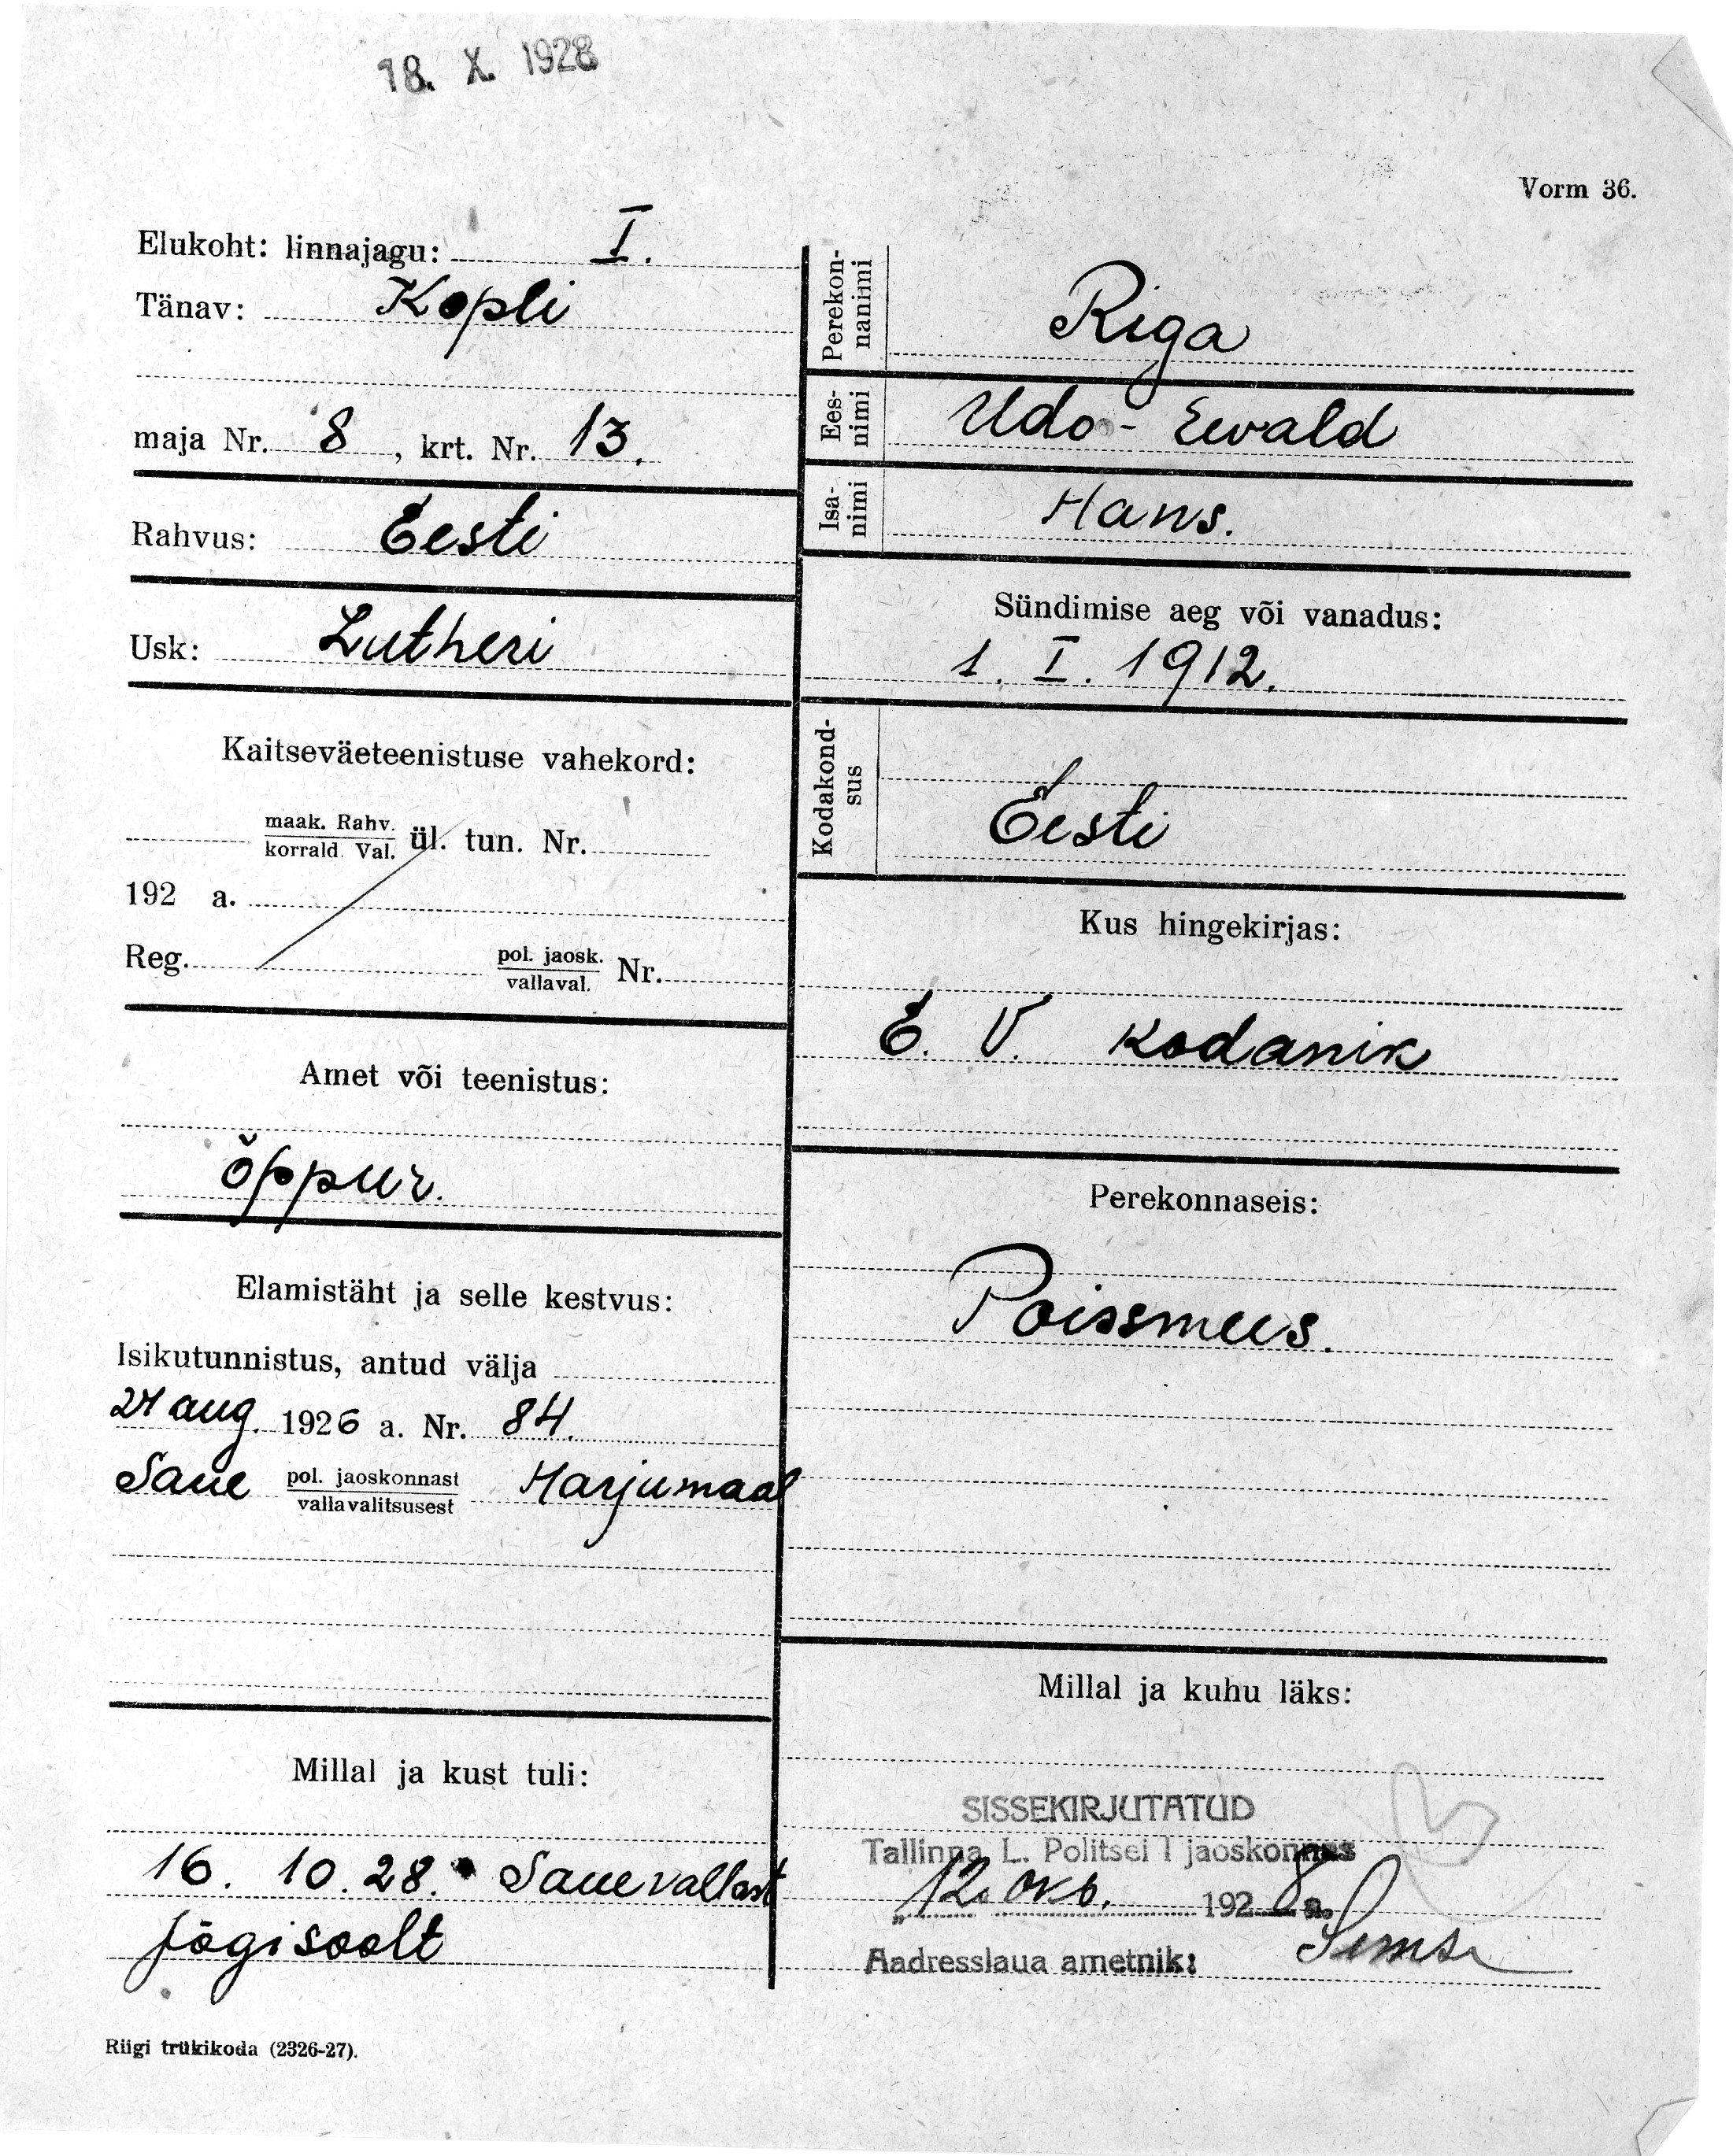 18. X. 1928
Vorm 36.
Elukoht: linnajagu: I.
Tänav: Kopli
maja Nr. 8, krt. Nr. 13.
Rahvus: Eesti
Usk: Lutheri
Kaitseväeteenistuse vahekord:
maak. Rahv.
korrald. Val. ül. tun. Nr.
192 a.
Reg. pol. jaosk.
vallaval. Nr.
Amet või teenistus:
õppur.
Elamistäht ja selle kestvus:
Isikutunnistus, antud välja
24 aug. 1926 a. Nr. 84.
Saue pol. jaoskonnast
vallavalitsusest Harjumaal
Millal ja kust tuli:
16. 10. 28. Saue vallast
Jõgisoolt
Riigi trükikoda (2326-27).
Perekon-
nanimi
Riga
Ees-
nimi
Udo-Ewald
Isa-
nimi
Hans.
Sündimise aeg või vanadus:
1. I. 1912.
Kodakond-
sus
Eesti
Kus hingekirjas:
E. V. kodanik
Perekonnaseis:
Poissmees.
Millal ja kuhu läks:
SISSEKIRJUTATUD
Tallinna L. Politsei I jaoskonnas
"12. okb. 1928 a.
Aadresslaua ametnik: